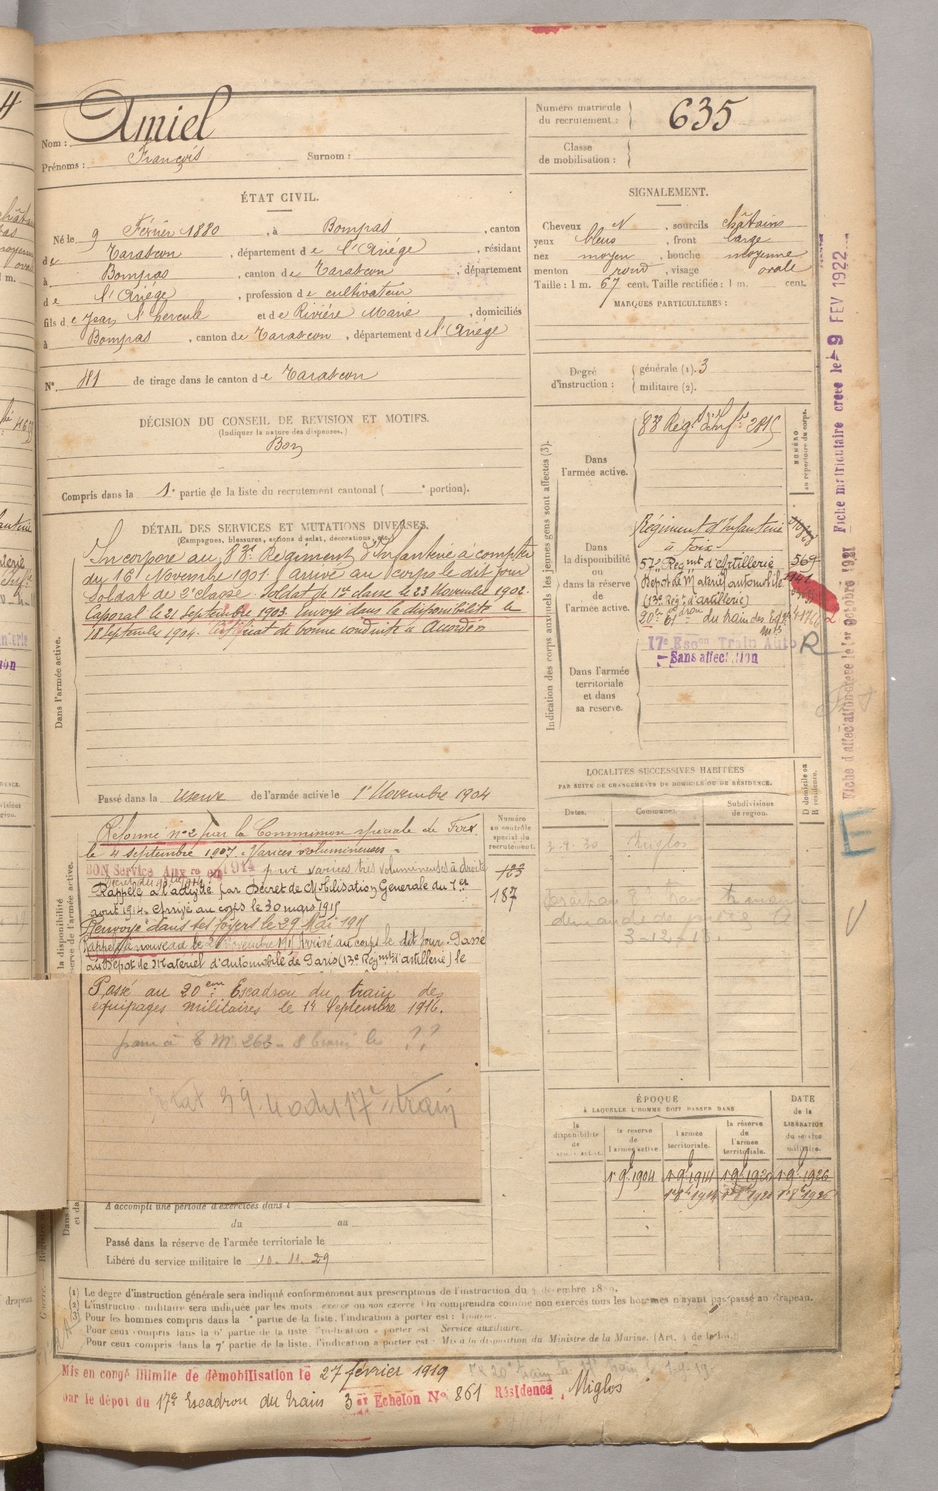 Nom : Amiel
Prénoms : François Surnom :
Numéro matricule du recrutement : 635
Classe de mobilisation :
ÉTAT CIVIL.
Né le 9 Février 1880, à Bompas, canton
de Tarascon, département de l'Ariége, résidant
à Bompas, canton de Tarascon, département
de l'Ariége, profession de cultivateur
fils de Jean hercule et de Rivière Marie, domiciliés
à Bompas, canton de Tarascon, département de l'Ariége
N° 481 de tirage dans le canton de Tarascon
SIGNALEMENT.
Cheveux N, sourcils châtains
yeux bleus, front large
nez moyen, bouche moyenne
menton rond, visage ovale
Taille : 1 m. 67 cent. Taille rectifiée : 1 m. cent.
MARQUES PARTICULIÈRES :
Degré d'instruction : générale (1). 3
militaire (2).
DÉCISION DU CONSEIL DE REVISION ET MOTIFS.
(Indiquer la nature des dispenses.)
Bon
Compris dans la 1e partie de la liste du recrutement cantonal ( e portion).
DÉTAIL DES SERVICES ET MUTATIONS DIVERSES.
(Campagnes, blessures, actions d'éclat, décorations, etc.)
Dans l'armée active.
Incorporé au 83e Régiment d'Infanterie à compter
du 16 Novembre 1901 arrivé au corps le dit jour
Soldat de 2e classe. Soldat de 1re classe le 23 Novembre 1902.
Caporal le 21 septembre 1903. Envoyé dans la disponibilité le
18 Septembre 1904. Certificat de bonne conduite Accordé
Passé dans la réserve de l'armée active le 1er Novembre 1904
Indication des corps auxquels les jeunes gens sont affectés (3).
Dans l'armée active.
83 Regt d'Infie 2815
NUMÉRO au répertoire du corps.
Dans la disponibilité ou dans la réserve de l'armée active.
Régiment d'Infanterie
à Foix
57e Regmt d'Artillerie 569
Dépot de Matériel automobile
(13e Régt d'artillerie)
20e Eson du train des Eq.
mts
17e Escon Train Auto R
Sans affectation
Dans l'armée territoriale et dans sa réserve.
Fiche matriculaire créée le 9 FEV 1922
Fiche d'affectation créée le 1er octobre 1921
LOCALITÉS SUCCESSIVES HABITÉES
PAR SUITE DE CHANGEMENTS DE DOMICILE OU DE RÉSIDENCE.
Dates. Communes. Subdivisions de région. D domicile ou R résidence.
3-9-30 Miglos
3-12-18
Numéro au contrôle spécial du recrutement.
123
187
Réformé n° 2 par la Commission spéciale de Foix
le 4 septembre 1907. Varices volumineuses.
BON Service Auxre en 1914 pour varices très volumineuses à droite
Rappelé à l'activité par Décret de Mobilisation Générale du 1er
août 1914. Arrivé au corps le 30 mars 1915
Renvoyé dans ses foyers le 29 Mai 1915
Rappelé à nouveau le novembre 1915 Arrivé au corps le dit jour. Passé
au Dépot de Matériel d'automobile de Paris (13e Régmt d'artillerie) le
Passé au 20eme Escadron du train des
équipages militaires le 14 Septembre 1916.
??
17e train
A accompli une période d'exercices dans l
du au
Passé dans la réserve de l'armée territoriale le
Libéré du service militaire le 10-11-29
ÉPOQUE
À LAQUELLE L'HOMME DOIT PASSER DANS
la disponibilité de l'armée active. la réserve de l'armée active. l'armée territoriale. la réserve de l'armée territoriale.
DATE de la LIBÉRATION du service militaire.
1 9e 1904 1 9e 1914 1 9e 1920 1 9e 1926
(1) Le degré d'instruction générale sera indiqué conformément aux prescriptions de l'instruction du
(2) L'instruction militaire sera indiquée par les mots : exercé ou non exercé. On comprendra comme non exercés tous les hommes n'ayant pas passé au drapeau.
(3) Pour les hommes compris dans la partie de la liste, l'indication à porter est :
Pour ceux compris dans la partie de la liste, l'indication à porter est : Service auxiliaire.
Pour ceux compris dans la 7e partie de la liste, l'indication à porter est : Mis à la disposition du Ministre de la Marine.
Mis en congé illimité de démobilisation le 27 février 1919
par le dépôt du 17e Escadron du train 3e Echelon N° 861 Résidence Miglos